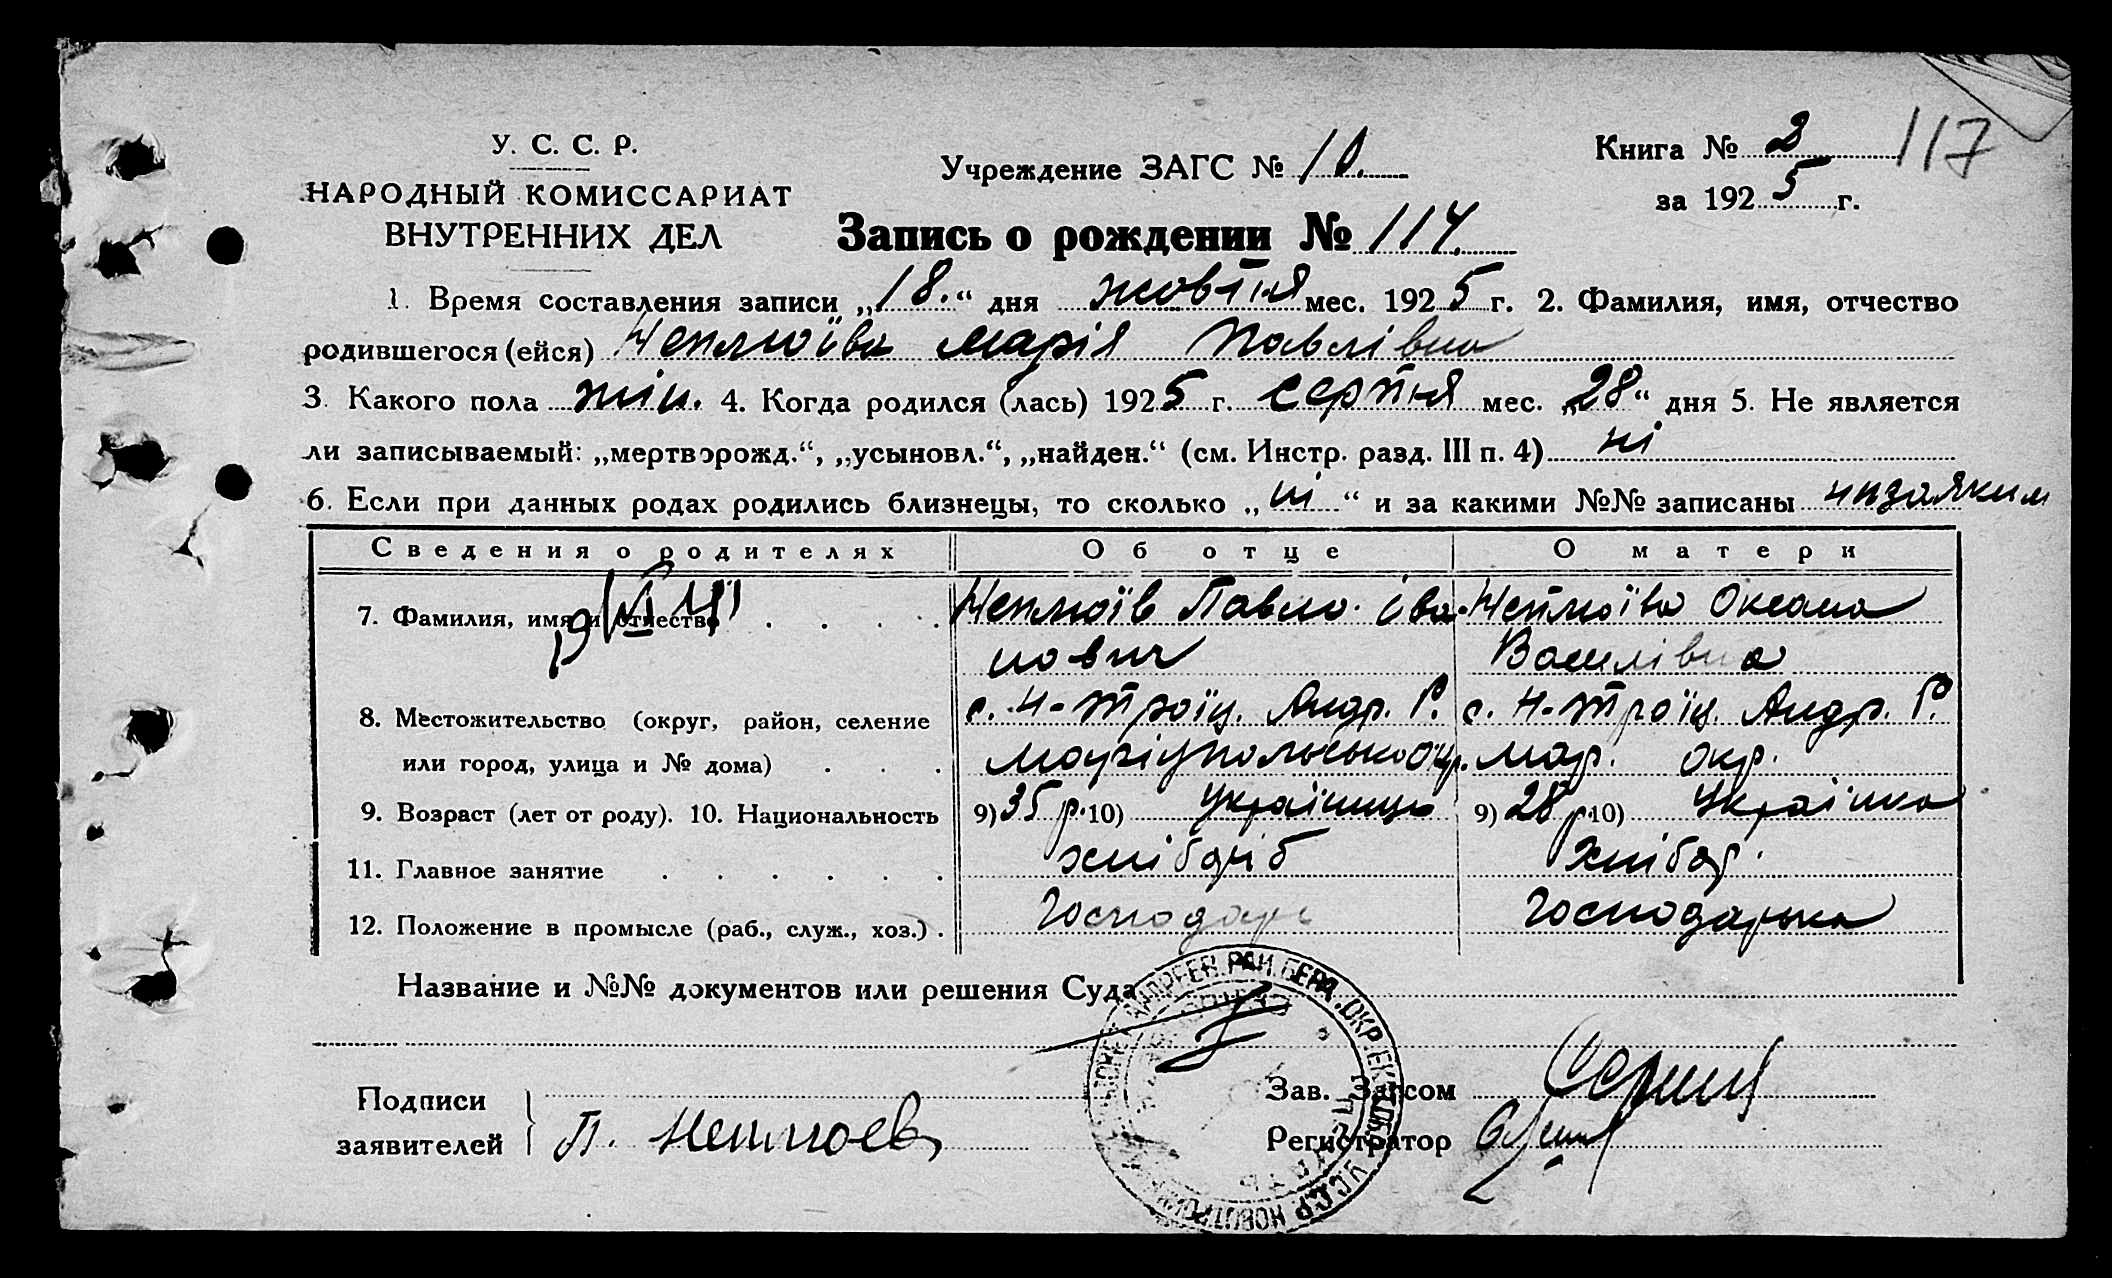 У. С. С. Р.
НАРОДНЫЙ КОМИССАРИАТ
ВНУТРЕННИХ ДЕЛ
Учреждение ЗАГС № 10.
Книга № 2
117
за 1925 г.
Запись о рождении № 114.
1. Время составления записи „18.“ дня жовтня мес. 1925 г. 2. Фамилия, имя, отчество
родившегося (ейся) Неплюїва Марія Павлівна
3. Какого пола жін. 4. Когда родился (лась) 1925 г. серпня мес. „28“ дня 5. Не является
ли записываемый: „мертворожд.“, „усыновл.“, „найден.“ (см. Инстр. разд. III п. 4) ні
6. Если при данных родах родились близнецы, то сколько „ні“ и за какими №№ записаны низаяким
Сведения о родителях Об отце О матери
7. Фамилия, имя и отчество . . . . Неплюїв Павло Іва- Неплюїва Оксана
нович Василівна
8. Местожительство (округ, район, селение с. Н-Троїц. Андр. Р. с. Н-Троїц. Андр. Р.
или город, улица и № дома) . . . Маріупольської окр. Мар. окр.
9. Возраст (лет от роду). 10. Национальность 9) 35 р. 10) Українець 9) 28 р. 10) Українка
11. Главное занятие . . . . . . хлібороб хлібор.
12. Положение в промысле (раб., служ., хоз.) . Господарь Господарька
Название и №№ документов или решения Суда
Подписи
заявителей
П. Неплюев
Зав. Загсом
Регистратор